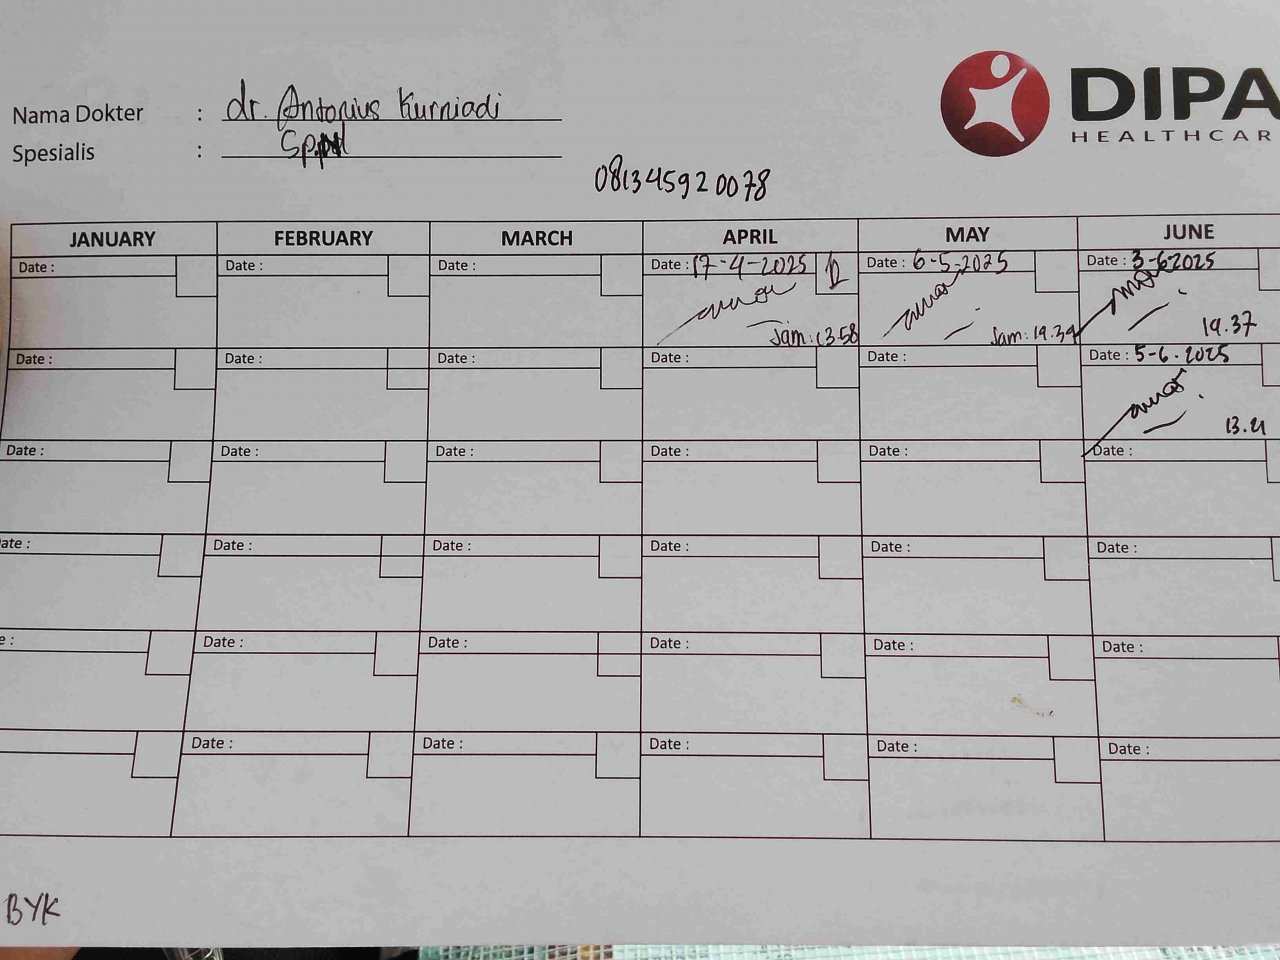 Nama Dokter : dr. Antonius Kurniadi
Spesialis :
DIPA
HEALTHCAR
081345920078
JANUARY FEBRUARY MARCH APRIL MAY JUNE
Date : Date : Date : Date : 17-4-2025 Date : 6-5-2025 Date : 3-6-2025
Jam: 13.58 Jam: 19.34 19.37
Date : Date : Date : Date : Date : Date : 5-6-2025
13.21
Date : Date : Date : Date : Date : Date :
ate : Date : Date : Date : Date : Date :
e : Date : Date : Date : Date : Date :
Date : Date : Date : Date : Date :
BYK